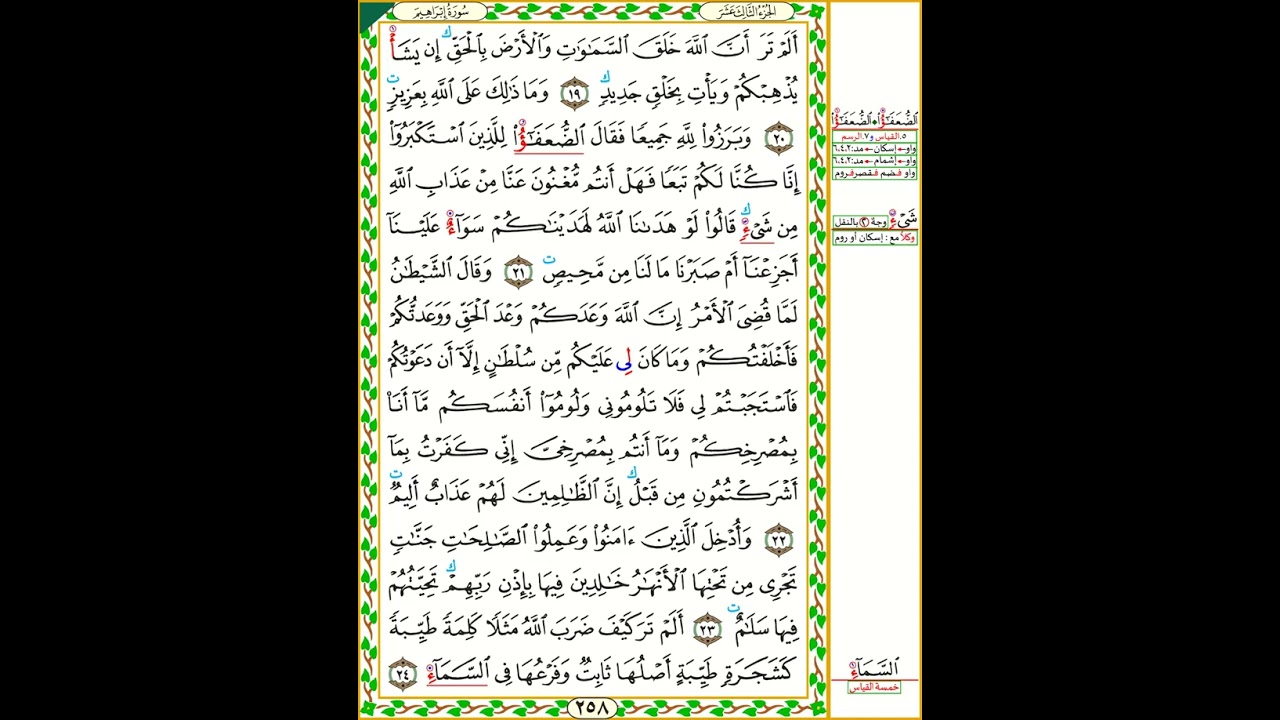 سُورَةُ إِبْرَاهِيم
الجُزْءُ الثَّالِثَ عَشَرَ
أَلَمْ تَرَ أَنَّ اللَّهَ خَلَقَ السَّمَٰوَٰتِ وَالْأَرْضَ بِالْحَقِّ ك إِن يَشَأْ
يُذْهِبْكُمْ وَيَأْتِ بِخَلْقٍ جَدِيدٍ ك ١٩ وَمَا ذَٰلِكَ عَلَى اللَّهِ بِعَزِيزٍ ت
٢٠ وَبَرَزُوا۟ لِلَّهِ جَمِيعًا فَقَالَ الضُّعَفَٰٓؤُا۟ لِلَّذِينَ اسْتَكْبَرُوٓا۟
إِنَّا كُنَّا لَكُمْ تَبَعًا فَهَلْ أَنتُم مُّغْنُونَ عَنَّا مِنْ عَذَابِ اللَّهِ
مِن شَىْءٍ ك قَالُوا۟ لَوْ هَدَىٰنَا اللَّهُ لَهَدَيْنَٰكُمْ سَوَآءٌ عَلَيْنَآ
أَجَزِعْنَآ أَمْ صَبَرْنَا مَا لَنَا مِن مَّحِيصٍ ت ٢١ وَقَالَ الشَّيْطَٰنُ
لَمَّا قُضِىَ الْأَمْرُ إِنَّ اللَّهَ وَعَدَكُمْ وَعْدَ الْحَقِّ وَوَعَدتُّكُمْ
فَأَخْلَفْتُكُمْ وَمَا كَانَ لِى عَلَيْكُم مِّن سُلْطَٰنٍ إِلَّآ أَن دَعَوْتُكُمْ
فَاسْتَجَبْتُمْ لِى فَلَا تَلُومُونِى وَلُومُوٓا۟ أَنفُسَكُم مَّآ أَنَا۠
بِمُصْرِخِكُمْ وَمَآ أَنتُم بِمُصْرِخِىِّ إِنِّى كَفَرْتُ بِمَآ
أَشْرَكْتُمُونِ مِن قَبْلُ ك إِنَّ الظَّٰلِمِينَ لَهُمْ عَذَابٌ أَلِيمٌ ت
٢٢ وَأُدْخِلَ الَّذِينَ ءَامَنُوا۟ وَعَمِلُوا۟ الصَّٰلِحَٰتِ جَنَّٰتٍ
تَجْرِى مِن تَحْتِهَا الْأَنْهَٰرُ خَٰلِدِينَ فِيهَا بِإِذْنِ رَبِّهِمْ ك تَحِيَّتُهُمْ
فِيهَا سَلَٰمٌ ت ٢٣ أَلَمْ تَرَ كَيْفَ ضَرَبَ اللَّهُ مَثَلًا كَلِمَةً طَيِّبَةً
كَشَجَرَةٍ طَيِّبَةٍ أَصْلُهَا ثَابِتٌ وَفَرْعُهَا فِى السَّمَآءِ ٢٤
٢٥٨
الضُّعَفَٰٓؤُا۟ ٠ الضُّعَفَٰٓؤُا۟
٥. القياس و٧. الرسم
واو ← إسكان ← مد: ٦،٤،٢
واو ← إشمام ← مد: ٦،٤،٢
واو فضم فقصر فروم
شَىْءٍ وجهٌ ٢ بالنقل
وكلاً مع: إسكان أو روم
السَّمَآءِ
خمسة القياس